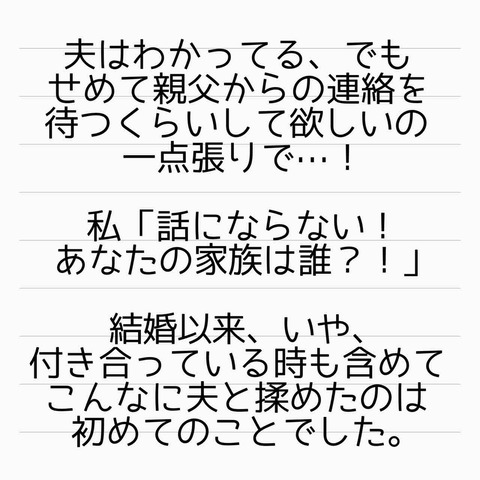 夫はわかってる、でも
せめて親父からの連絡を
待つくらいして欲しいの
一点張りで…！
私「話にならない！
あなたの家族は誰？！」
結婚以来、いや、
付き合っている時も含めて
こんなに夫と揉めたのは
初めてのことでした。